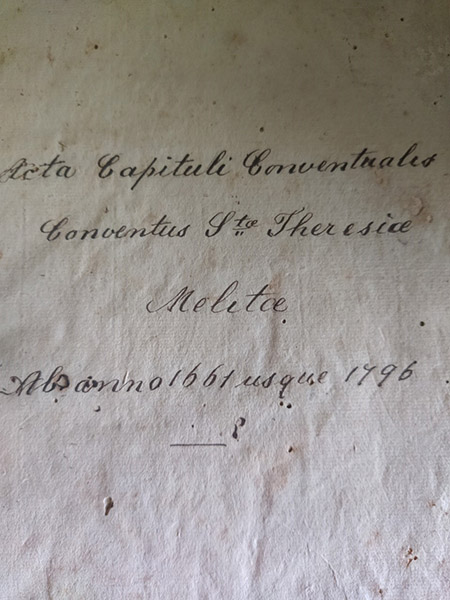 Acta Capituli Conventualis
Conventus S.tæ Theresiæ
Melitæ
Ab anno 1661 usque 1796